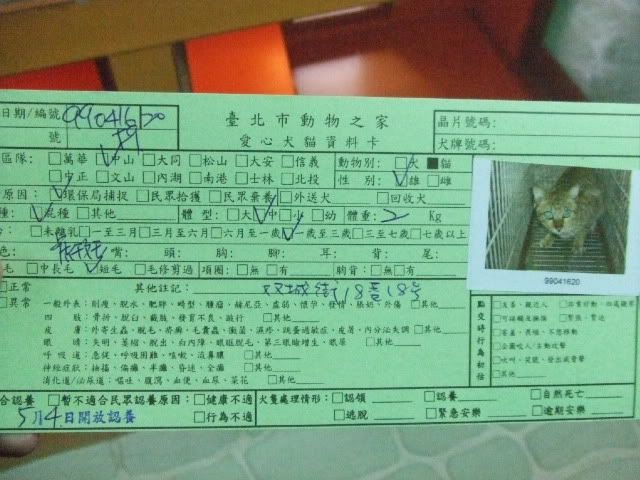 臺北市動物之家
愛心犬貓資料卡
日期/編號 99041620
號
晶片號碼:
犬牌號碼:
區隊: □萬華 ☑中山 □大同 □松山 □大安 □信義 動物別: □犬 ■貓
□中正 □文山 □內湖 □南港 □士林 □北投 性 別: ☑雄 □雌
原因: ☑環保局捕捉 □民眾拾獲 □民眾棄養 □外送犬 □回收犬
種: ☑混種 □其他 體 型: □大 ☑中 □小 □幼 體重: 2 Kg
: □未離乳 □一至三月 □三月至六月 □六月至一歲 ☑一歲至三歲 □三至七歲 □七歲以上
色: 嘴: 頭: 胸: 腳: 耳: 背: 尾:
毛 □中長毛 ☑短毛 □毛修剪過 項圈: □無 □有 胸背: □無 □有
□正常 其他註記: 双城街18巷18号
□異常 一般外表: 削瘦、脫水、肥胖、畸型、腫瘤、赫尼亞、虛弱、懷孕、發情、脹奶、外傷 □其他
四 肢: 骨折、脫臼、截肢、發育不良、跛行 □其他
皮 膚: 外寄生蟲、脫毛、疥癬、毛囊蟲、黴菌、濕疹、跳蚤過敏症、皮屑、內分泌失調 □其他
眼 睛: 失明、萎縮、脫出、白內障、眼眶脫毛、第三眼瞼增生、眼屎 □其他
呼 吸 道: 急促、呼吸困難、咳嗽、流鼻膿 □其他
神經症狀: 抽搐、偏癱、半癱、昏迷、全癱 □其他
消化道/泌尿道: 嘔吐、腹瀉、血便、血尿、菜花 □其他
99041620
點交時行為初估
□友善、親近人
□可接觸及撫摸 □緊張、緊迫
□害羞、畏懼、不想移動
□企圖咬人/主動攻擊
□吠叫、哭號、發出威脅聲
□其他
合認養 □暫不適合民眾認養原因: □健康不適 犬隻處理情形: □認領 □認養 □自然死亡
5月4日開放認養 □行為不適 □逃脫 □緊急安樂 □逾期安樂